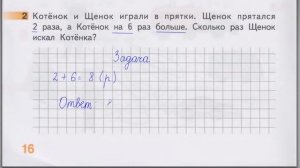 2 Котёнок и Щенок играли в прятки. Щенок прятался
2 раза, а Котёнок на 6 раз больше. Сколько раз Щенок
искал Котёнка?
Задача
2+6=8 (р.)
Ответ:
16